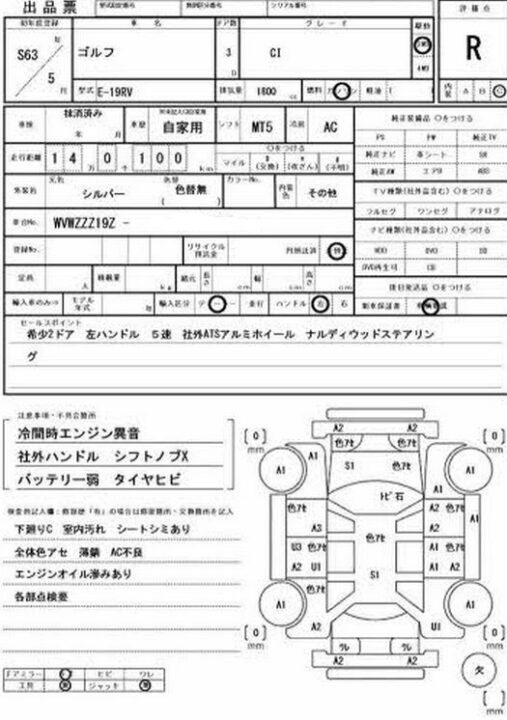 出品票
初年度登録 車名 ドア数 グレード 駆動 評価点
S63 年 ゴルフ 3 D CI R
5 月 型式 E-19RV 排気量 1800 cc 燃料 軽油 内装 A B C
車検 抹消済み 年 月 車歴 自家用 シフト MT5 冷房 AC
純正装備品 〇をつける
PS PW 純正TV
純正ナビ 革シート SR
純正AW エアB ABS
走行距離 14万0100km マイル
外装色 元色 シルバー 色替 色替無 カラーNo. 内装色 その他
TV種類(社外品含む)〇をつける
フルセグ ワンセグ アナログ
車台No. WVWZZZ19Z -
ナビ種類(社外品含む)〇をつける
HDD DVD SD
DVD再生可 CD
登録No. リサイクル預託金
定員 人 積載量 kg 諸元 長さ cm 幅 cm 高さ cm
後日発送品 〇をつける
輸入車のみ モデル年式 年 輸入区分 並行 ハンドル 左 右 新車保証書
セールスポイント
希少2ドア 左ハンドル 5速 社外ATSアルミホイール ナルディウッドステアリン
グ
注意事項・不具合箇所
冷間時エンジン異音
社外ハンドル シフトノブX
バッテリー弱 タイヤヒビ
下廻りC 室内汚れ シートシミあり
全体色アセ 薄錆 AC不良
エンジンオイル滲みあり
各部点検要
A2
[0] mm A2 色アセ 色アセ A2 [0] mm
A1 A1 S1 色アセ A1 A1
トビ石
色アセ A2 色アセ A1
A3 色アセ A2
U3 色アセ A1 色アセ
A2 U1 S1 A1 A2
色アセ
A1 A2 U1 A1
[0] mm ワレ ワレ [0] mm
A2 A2 A2
欠
[ ] mm
ドアミラー ヒビ ワレ
工具 ジャッキ